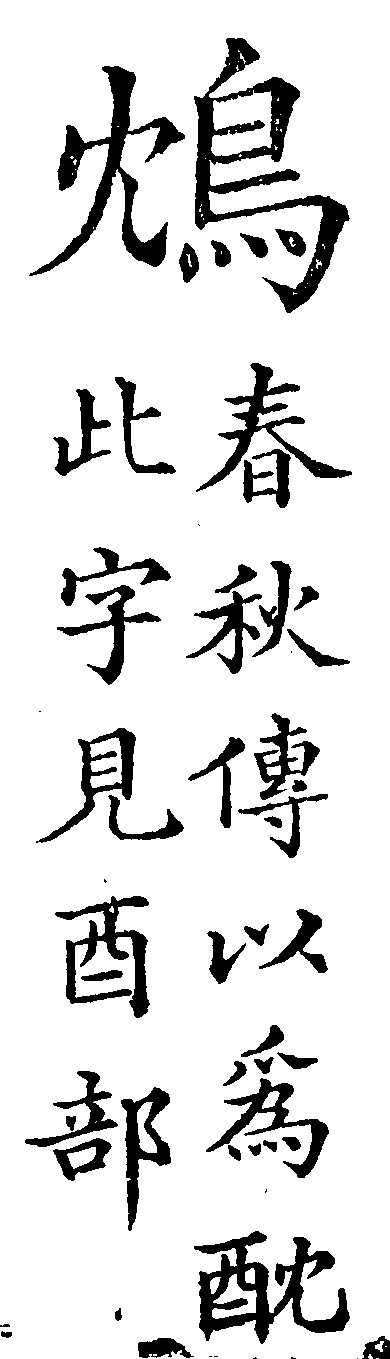 鴆
春秋傳以爲酖
此字見酉部